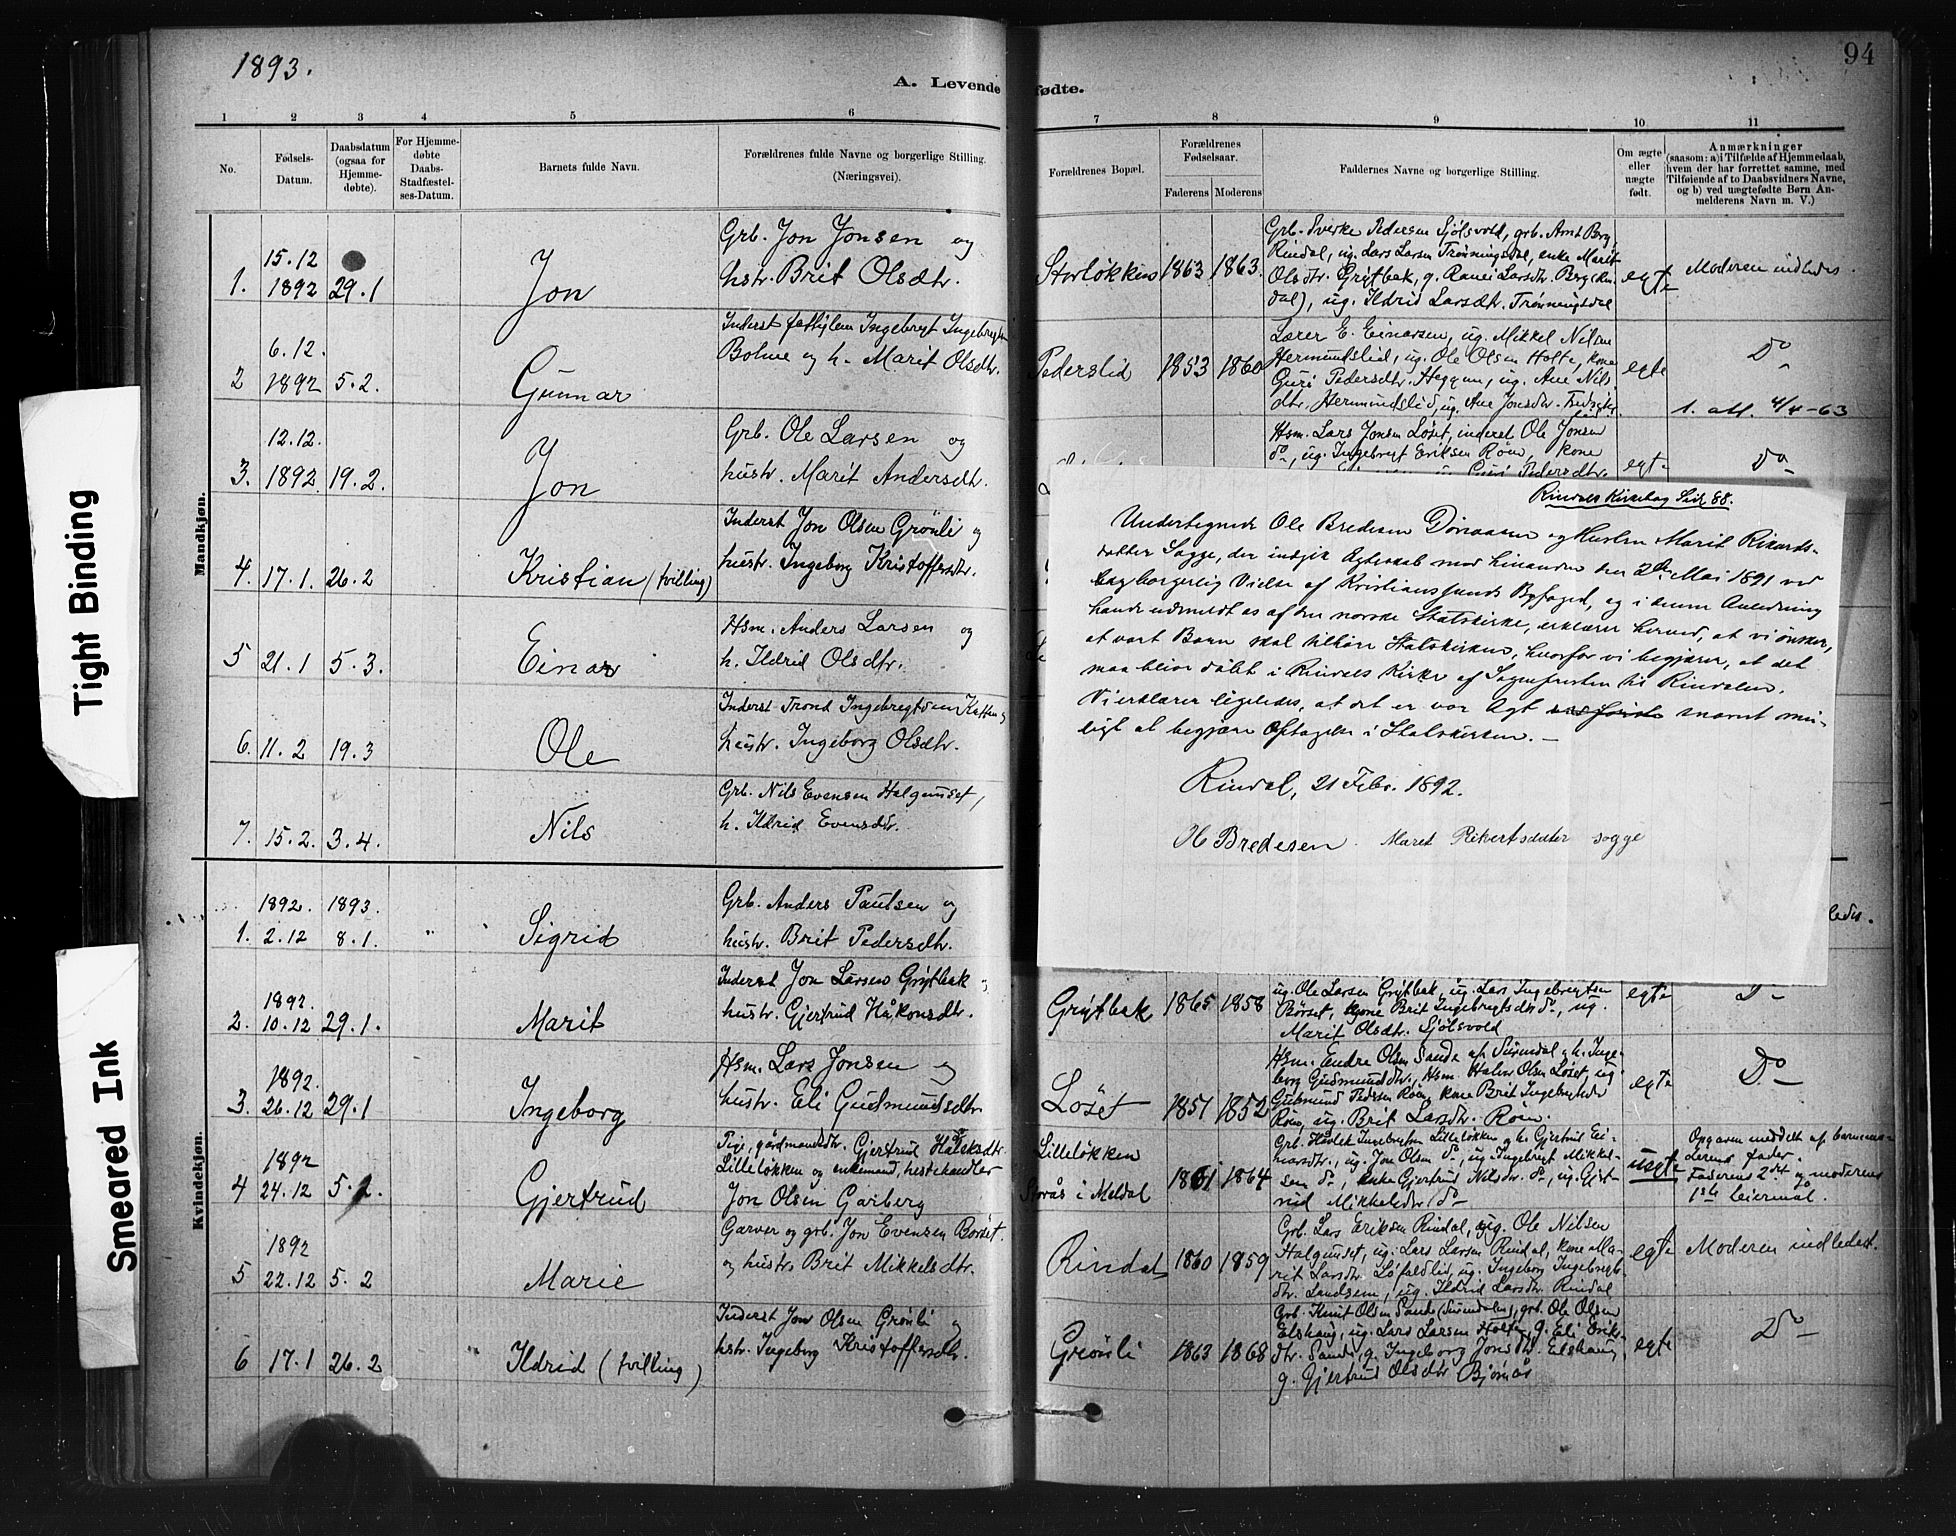 1893.
94
A. Levende fødte.
1 2 3 4 5 6 7 8 9 10 11
No.
Fødsels-
Datum.
Daabsdatum
(ogsaa for
Hjemme-
døbte).
For Hjemme-
døbte
Daabs-
Stadfæstel-
ses-Datum.
Barnets fulde Navn.
Forældrenes fulde Navne og borgerlige Stilling.
(Næringsvei).
Forældrenes Bopæl.
Forældrenes
Fødselsaar.
Faderens Moderens
Faddernes Navne og borgerlige Stilling.
Om ægte
eller
uægte
født.
Anmærkninger
(saasom: a) i Tilfælde af Hjemmedaab,
hvem der har forrettet samme, med
Tilføiende af to Daabsvidners Navne,
og b) ved uægtefødte Børn An-
melderens Navn m. V.)
Mandkjøn.
1. 15.12 1892 29.1 Jon
Grb. Jon Jonsen og
hstr. Brit Olsdtr.
Storløkken 1863 1863.
Grb. Sverke Pedersen Sjølsvold, grb. Arnt Berg,
Rindal, ug. Lars Larsen Trønningsdal, enke Marit
Olsdtr. Grytbak, g. Ranei Larsdtr. Berg (Rin-
dal), ug. Ildrid Larsdtr. Trønningsdal
egte Moderen indledes.
2 6.12. 1892 5.2. Gunnar
Inderst Ingebregt
Bolme og h. Marit Olsdtr.
Pederslid 1853 1860
Lærer E. Einarsen, ug. Mikkel Nilsen
Hermundslid, ug. Ole Olsen Holte, kone
Guri Pedersdtr. Heggem, ug. Ane Nils-
dtr. Hermundslid, ug. Ane Jonsdtr.
egte Do
1. att. 4/4-63
3. 12.12. 1892 19.2. Jon
Grb. Ole Larsen og
hustr. Marit Andersdtr.
Hsm. Lars Jonsen Løset, inderst Ole Jonsen
do, ug. Ingebregt Eriksen Røen, kone
Guri Pedersdtr.
egte Do
4. 17.1. 26.2 Kristian (tvilling)
Inderst Jon Olsen Grønli og
hustr. Ingeborg Kristoffersdtr.
5 21.1 5.3. Einar
Hsm. Anders Larsen og
h. Ildrid Olsdtr.
6. 11.2 19.3 Ole
Inderst Trond Ingebregtsen
hustr. Ingeborg Olsdtr.
7. 15.2. 3.4. Nils
Grb. Nils Evensen Halgunset,
h. Ildrid Evensdtr.
Rindals Kirkebog Side 88.
Undertegnede Ole Bredesen Dønaasen og Hustru Marit Rikards-
datter Sogge, der indgik Ægteskab med hinanden den 2den Mai 1891 ved
borgerlig Vielse af Kristianssunds Byfoged, og i denne Anledning
havde udmeldt os af den norske Statskirke, erklærer herved, at vi ønsker,
at vort Barn skal tilhøre Statskirken, hvorfor vi begjærer, at det
maa blive døbt i Rindals Kirke af Sognepresten til Rindalen.
Vi erklærer ligeledes, at det er vor Agt snarest mu-
ligt at begjære Optagelse i Statskirken. —
Rindal, 21 Febr. 1892.
O Bredesen. Maret Rikertsdatter sogge
Kvindekjøn.
1. 1892. 2.12 1893. 8.1. Sigrid
Grb. Anders Paulsen og
hustr. Brit Pedersdtr.
ledes.
2. 1892. 10.12 29.1. Marit
Inderst Jon Larsen Grytbak
hustr. Gjertrud Håkonsdtr.
Grytbak 1865 1858
ug. Ole Larsen Grytbak, ug. Lars Ingebregtsen
Børset, kone Brit Ingebregtsdtr do, ug.
Marit Olsdtr. Sjølsvold
egte Do
3. 1892. 26.12 29.1 Ingeborg
Hsm. Lars Jonsen og
hustr. Eli Gudmundsdtr
Løset 1851 1852
Hsm. Endre Olsen Sande af Surendal, h. Inge-
borg Gudmundsdtr., Hsm. Halvor Olsen Løset, ug.
Gudmund Pedersen Røen, kone Brit Ingebregtsdtr
Røen, ug. Brit Larsdtr. Røen.
egte Do
4 1892 24.12 5.2. Gjertrud
Pige, gårdmandsdtr. Gjertrud
Lilleløkken og enkemand, hestehandler
Jon Olsen Garberg
Lilleløkken
Storås i Meldal 1861 1864
Grb. Ingebregtsen Lilleløkken og h. Gjertrud Ei-
narsdtr., ug. Jon Olsen do, ug. Ingebregt Mikkel-
sen do, enke Gjertrud Nilsdtr. do, ug. Gjert-
rud Mikkelsdtr do
uegte
Opgaven meddelt af barnemo-
derens fader.
Faderens 2det og moderens
1ste leiermål.
5 1892 22.12 5.2 Marie
Garver og grb. Jon Evensen Børset.
og hustr. Brit Mikkelsdtr.
Rindal 1860 1859
Grb. Lars Eriksen Rindal, ug. Ole Nilsen
Halgunset, ug. Lars Larsen Rindal, kone Ma-
rit Larsdtr. Løfaldlid, ug. Ingeborg Ingebregts-
dtr. Landsem, ug. Ildrid Larsdtr Rindal
egte Moderen indledest.
6 17.1 26.2 Ildrid (tvilling)
Inderst Jon Olsen Grønli og
hstr. Ingeborg Kristoffersdtr.
Grønli 1863 1868
Grb. Knut Olsen Sande (Surendalen), grb. Ole Olsen
Elshaug, ug. Lars Larsen Holten, g. Eli Eriks-
dtr. Sande, g. Ingeborg Jonsdtr. Elshaug,
g. Gjertrud Olsdtr Bjørnås
egte Do
Tight Binding
Smeared Ink